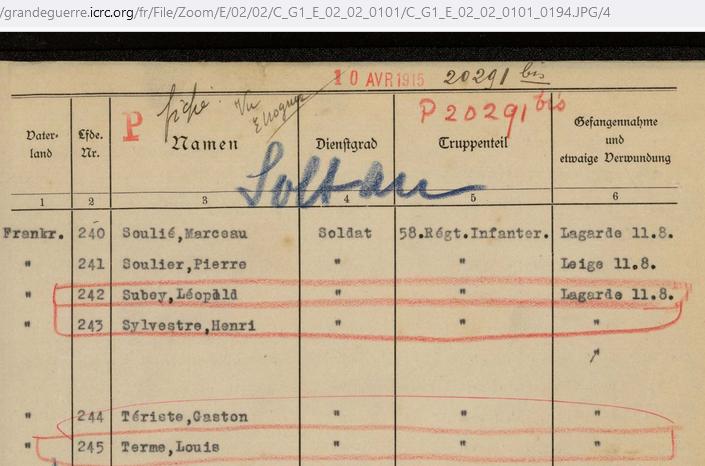 /grandeguerre.icrc.org/fr/File/Zoom/E/02/02/C_G1_E_02_02_0101/C_G1_E_02_02_0101_0194.JPG/4
10 AVR 1915 20291 bis
fiché. Vu
P P20291 bis
Vater-land Lfde. Nr. Namen Dienstgrad Truppenteil Gefangennahme und etwaige Verwundung
Soltau
1 2 3 4 5 6
Frankr. 240 Soulié,Marceau Soldat 58.Régt.Infanter. Lagarde 11.8.
" 241 Soulier,Pierre " " Leige 11.8.
" 242 Subey,Léopold " " Lagarde 11.8.
" 243 Sylvestre,Henri " " "
" 244 Tériste,Gaston " " "
" 245 Terme,Louis " " "